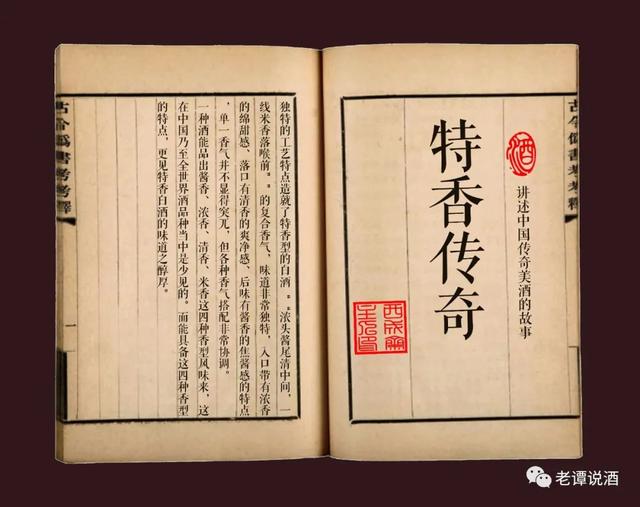 古今偽書考考釋
酒
讲述中国传奇美酒的故事
特香传奇
独特的工艺特点造就了特香型的白酒。“浓头酱尾清中间，一
线米香落喉前。”的复合香气，味道非常独特，入口带有浓香
的绵甜感、落口有清香的爽净感、后味有酱香的焦酱感的特点
，单一香气并不显得突兀，但各种香气搭配非常协调。
一种酒能品出酱香、浓香、清香、米香这四种香型风味来，这
在中国乃至全世界酒品种当中是少见的。而能具备这四种香型
的特点，更见特香白酒的味道之醇厚。
古今偽書考考釋
一
老谭说酒